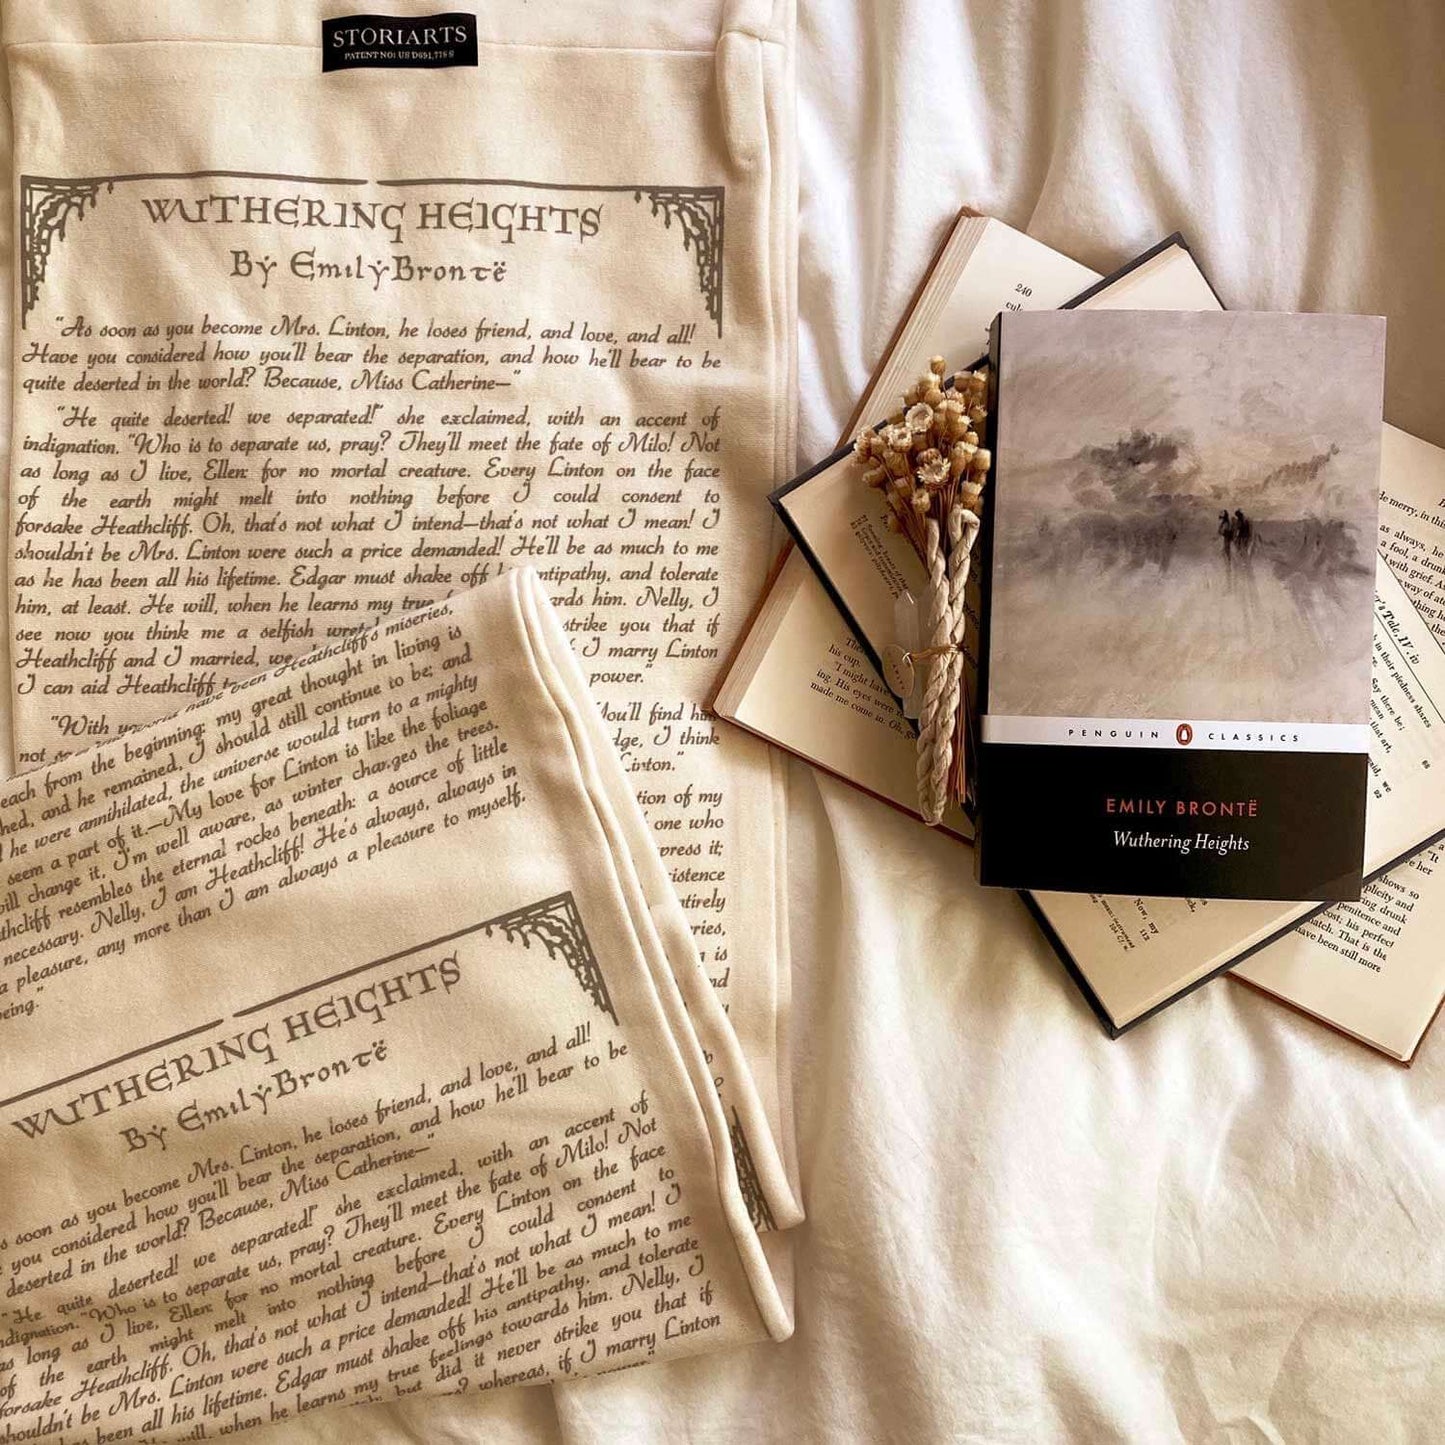 STORIARTS
PATENT NO: US D691,776 S
WUTHERING HEIGHTS
By Emily Brontë
"As soon as you become Mrs. Linton, he loses friend, and love, and all!
Have you considered how you'll bear the separation, and how he'll bear to be
quite deserted in the world? Because, Miss Catherine—"
"He quite deserted! we separated!" she exclaimed, with an accent of
indignation. "Who is to separate us, pray? They'll meet the fate of Milo! Not
as long as I live, Ellen: for no mortal creature. Every Linton on the face
of the earth might melt into nothing before I could consent to
forsake Heathcliff. Oh, that's not what I intend—that's not what I mean! I
shouldn't be Mrs. Linton were such a price demanded! He'll be as much to me
as he has been all his lifetime. Edgar must shake off ntipathy, and tolerate
him, at least. He will, when he learns my true ards him. Nelly, I
see now you think me a selfish strike you that if
Heathcliff and I married, I marry Linton
I can aid Heathcliff power."
"With You'll find him
not dge, I think
Linton."
tion of my
one who
press it;
istence
ntirely
ries,
is
nd
been Heathcliff's miseries,
each from the beginning: my great thought in living is
hed, and he remained, I should still continue to be; and
he were annihilated, the universe would turn to a mighty
seem a part of it.—My love for Linton is like the foliage
will change it, I'm well aware, as winter changes the trees.
thcliff resembles the eternal rocks beneath: a source of little
necessary. Nelly, I am Heathcliff! He's always, always in
a pleasure, any more than I am always a pleasure to myself,
being."
WUTHERING HEIGHTS
By Emily Brontë
soon as you become Mrs. Linton, he loses friend, and love, and all!
you considered how you'll bear the separation, and how he'll bear to be
deserted in the world? Because, Miss Catherine—"
"He quite deserted! we separated!" she exclaimed, with an accent of
indignation. "Who is to separate us, pray? They'll meet the fate of Milo! Not
as long as I live, Ellen: for no mortal creature. Every Linton on the face
of the earth might melt into nothing before I could consent to
forsake Heathcliff. Oh, that's not what I intend—that's not what I mean! I
shouldn't be Mrs. Linton were such a price demanded! He'll be as much to me
been all his lifetime. Edgar must shake off his antipathy, and tolerate
will, when he learns my true feelings towards him. Nelly, I
but did it never strike you that if
whereas, if I marry Linton
power."
240
PENGUIN CLASSICS
EMILY BRONTË
Wuthering Heights
his cup.
"I might have
ing. His eyes were
made me come in. Oh, go
de merry, in this
as always, he
a fool, a drunk
with grief.
way of
thing
's Tale, IV. iv
in their pedness shares
Say there be;
mean
that art,
68
said, we
92
"It
e her
shows so
plicity and
ring drunk
penitence and
cost; his perfect
match. That is the
have been still more
Now, my
113